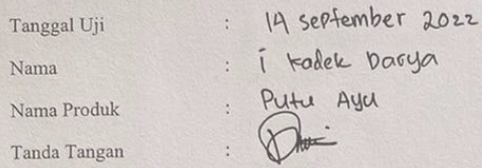 Tanggal Uji : 14 september 2022
Nama : i kadek Darya
Nama Produk : Putu Ayu
Tanda Tangan :